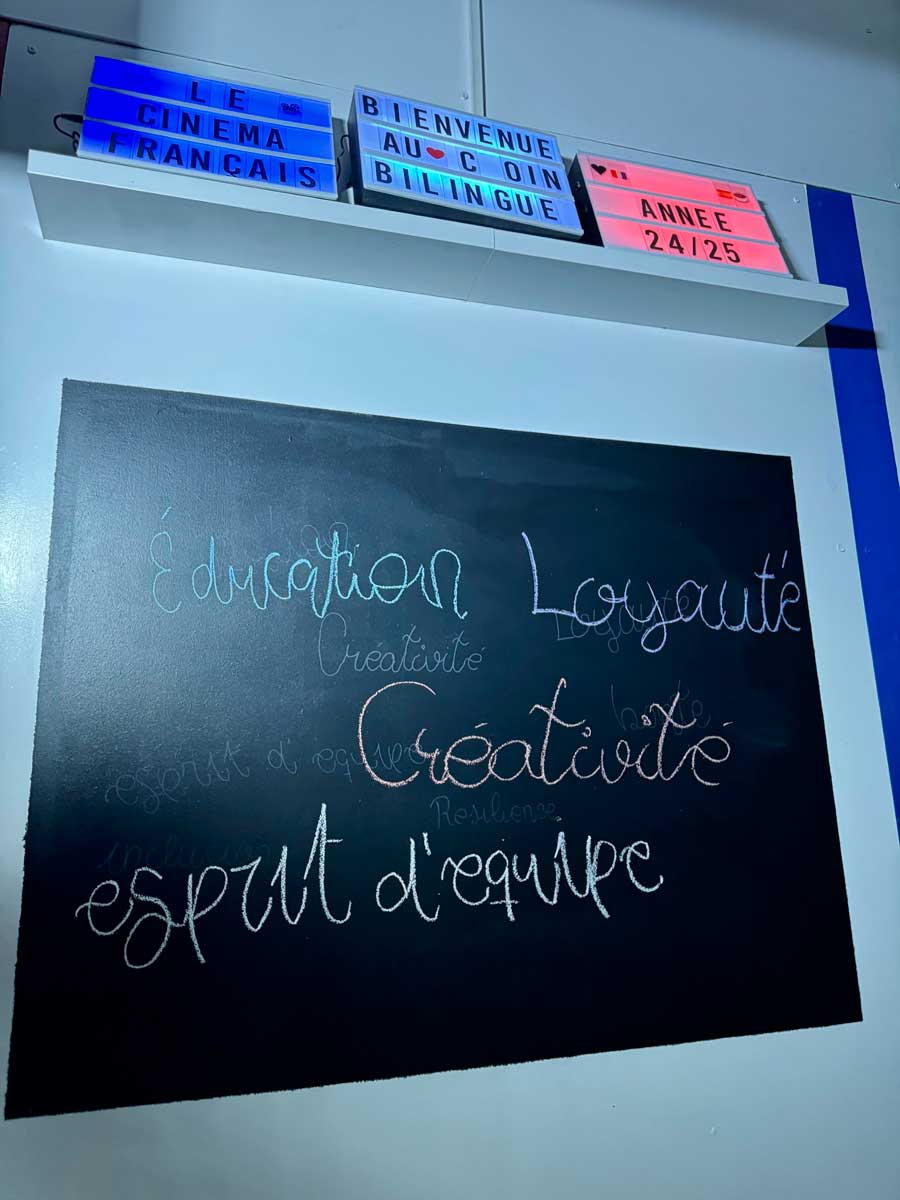 LE
CINEMA
FRANÇAIS
BIENVENUE
AU❤C OIN
BILINGUE
ANNEE
24/25
Éducation
Loyauté
Créativité
Loyauté
Créativité
esprit d'equipe
Resilience
esprit d'equipe